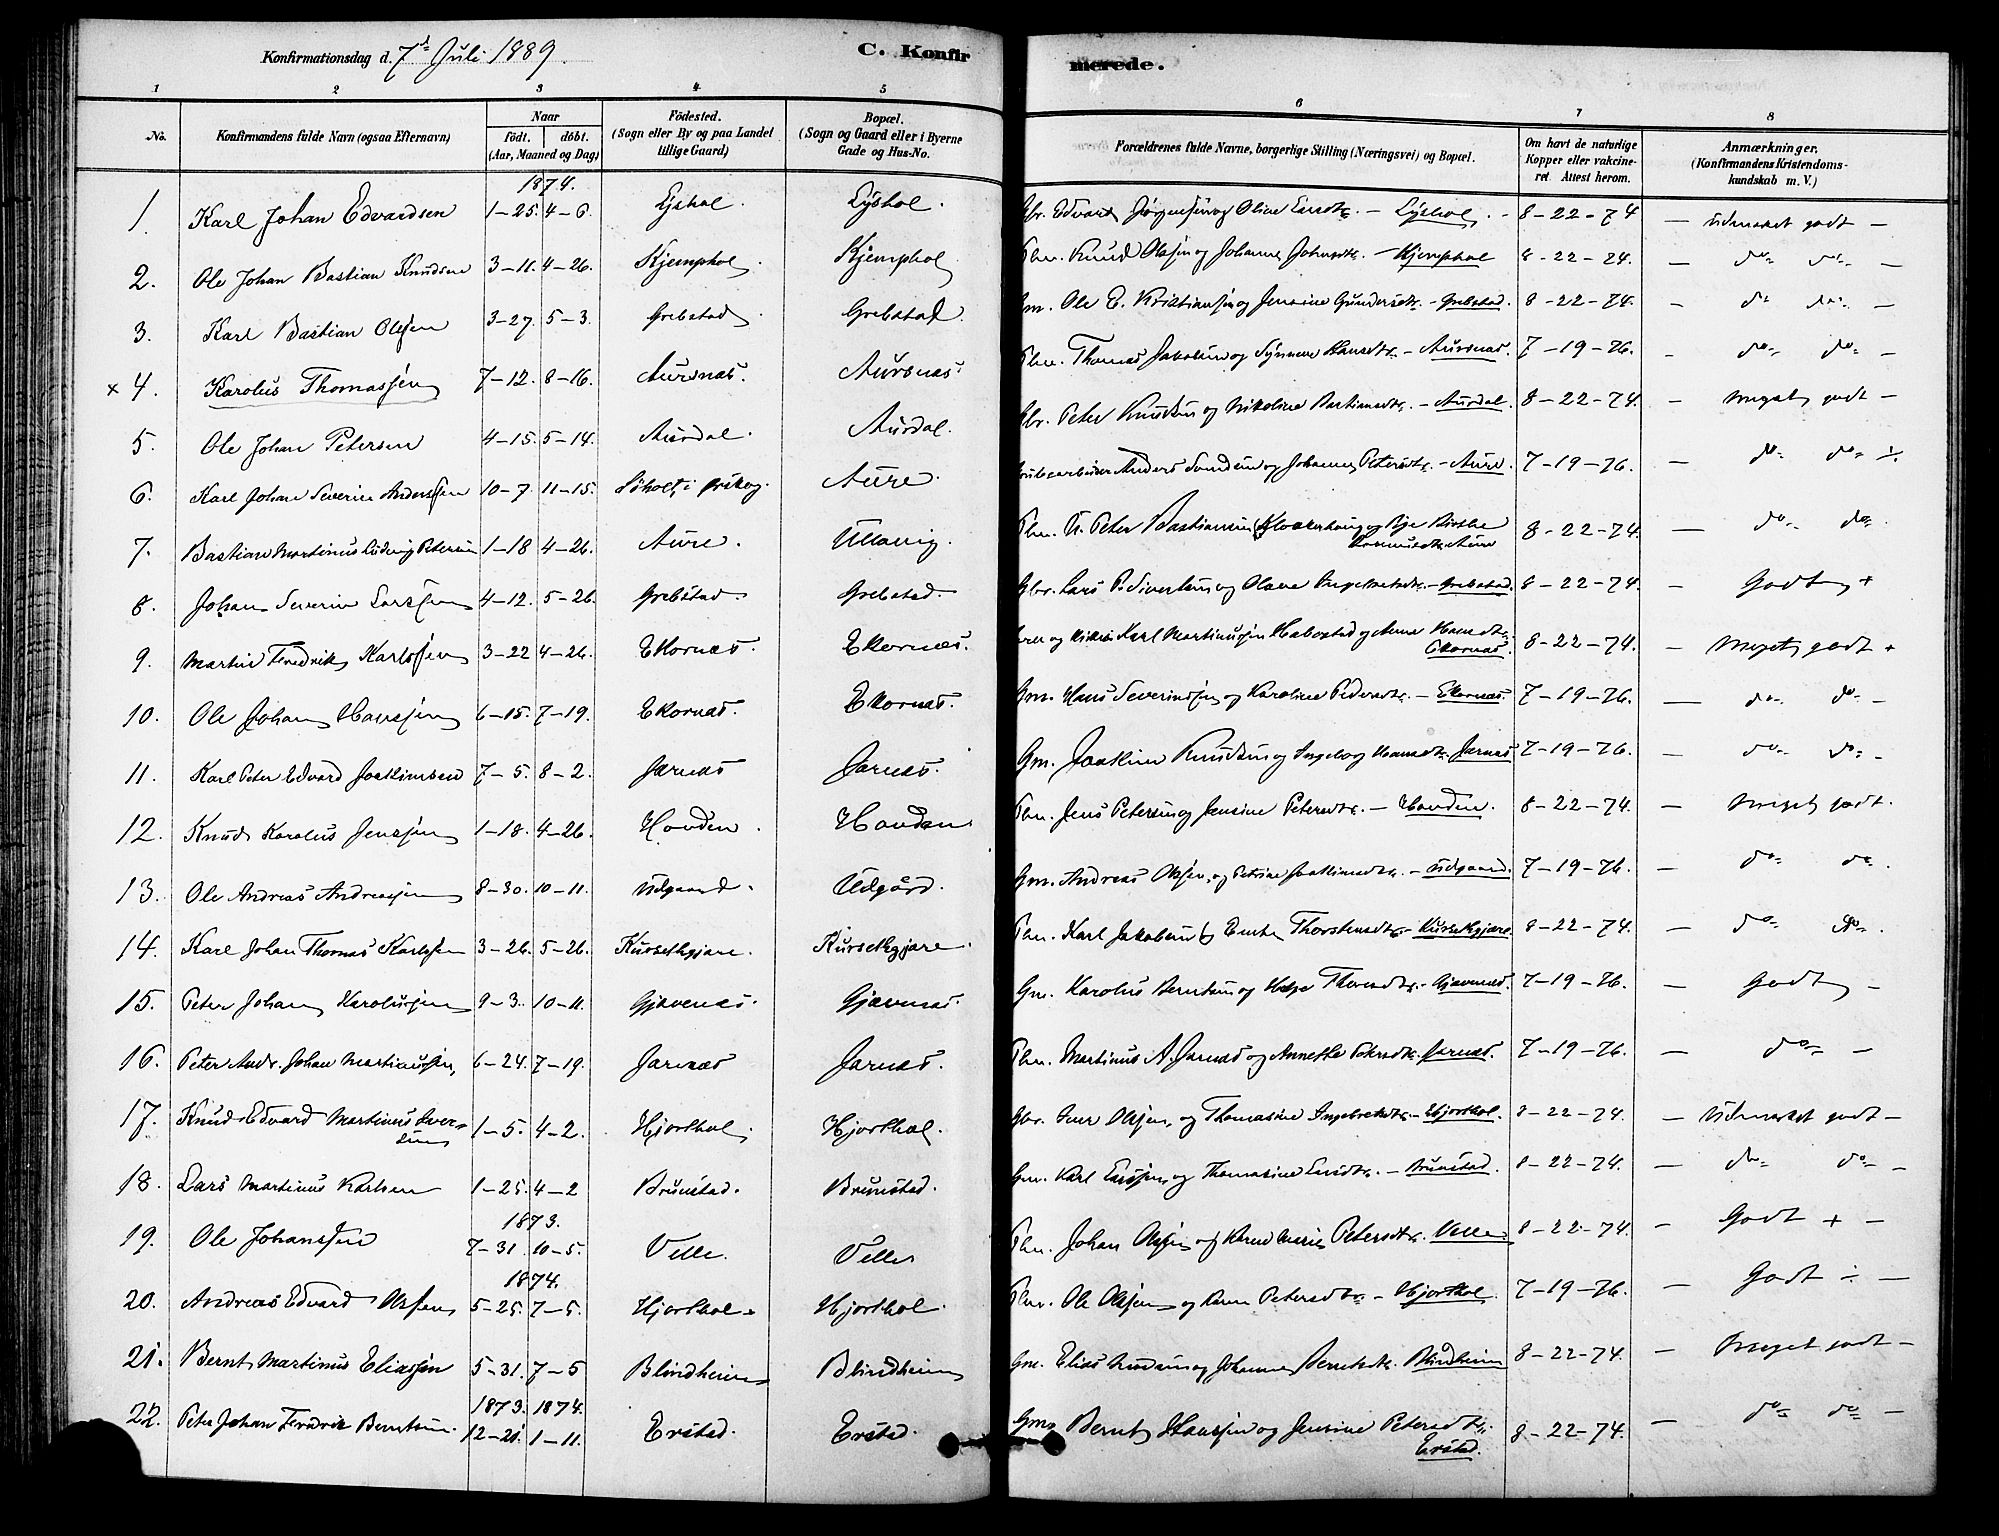 Konfirmationsdag d. 7de Juli 1889.
C. Konfirmerede.
1 2 3 4 5 6 7 8
No. Konfirmandens fulde Navn (ogsaa Efternavn) Naar födt. döbt. (Aar, Maaned og Dag) Födested. (Sogn eller By og paa Landet tillige Gaard) Bopæl. (Sogn og Gaard eller i Byerne Gade og Hus-No. Forældrenes fulde Navne, borgerlige Stilling (Næringsvei) og Bopæl. Om havt de naturlige Kopper eller vakcineret. Attest herom. Anmærkninger, (Konfirmandens Kristendomskundskab m. V.)
1874.
1. Karl Johan Edvardsen 1-25. 4-6. Lyshol. Lyshol. Gbr. Edvard Jørgensen og Oline - Lyshol. - 8-22-74 - Udmærket godt -
2. Ole Johan Bastian Knudsen 3-11. 4-26. Kjemphol. Kjemphol. Knud Olsen og Johanne - Kjemphol 8-22-74. - do do -
3. Karl Bastian Olssen 3-27. 5-3. Grebstad. Grebstad. Gm. Ole E. Kristiansen og Jensine Gundersdtr. - Grebstad. 8-22-74. - do do -
× 4. Karolus Thomassen 7-12. 8-16. Aursnæs. Aursnæs. Thomas Jakobsen og Synneve Hansdtr. - Aursnæs. 7-19-76. - do do -
5. Ole Johan Petersen 4-15. 5-14. Aurdal. Aurdal. Gbr. Peter Knudsen og Nikoline Bastiansdtr. - Aurdal. 8-22-74. - Meget godt -
6. Karl Johan Severin Anderssen 10-7. 11-15. Søholt, i Ørskog. Aure. Anders og Johanne Petersdtr. - Aure. 7-19-76. - do do ÷.
7. Bastian Martinus Ludvig Petersen 1-18 4-26. Aure. Ullavig. Peter Bastiansen og Birthe Aure 8-22-74. - do do.
8. Johan Severin Larssen 4-12. 5-26. Grebstad. Grebstad. Gbr. Lars P. Sivertsen og Olave - Grebstad. 8-22-74. - Godt +
9. Martin Fredrik Karlssen 3-22 4-26. Ekornæs. Ekornæs. Karl Martinussen og Anne Hansdtr. Ekornæs. 8-22-74. - Meget godt +
10. Ole Johan Hanssen 6-15. 7-19. Ekornæs. Ekornæs. Gm. Hans Severinssen og Karoline Pedersdtr. - Ekornæs. 7-19-76. - do do -
11. Karl Peter Edvard Joakimsen 7-5. 8-2. Jarnæs Jarnæs. Gm. Joakim Knudsen og Ingeborg Hansdtr. Jarnæs 7-19-76. - do do -
12. Knud Karolus Jenssen 1-18. 4-26. Hovden. Hovden. Jens Petersen og Jensine Petersdtr. - Hovden. 8-22-74. - Meget godt.
13. Ole Andreas Andreassen 8-30. 10-11. Udgaard. Udgård. Gm. Andreas Olssen, og Petrine Joakimsdtr. - Udgaard. 7-19-76. - do do.
14. Karl Johan Thomas Karlssen 3-26. 5-26. Kursetkgjære. Kursetkgjære. Karl Jakobsen & Thorstensdtr. - Kursetkgjære 8-22-74. - do do.
15. Peter Johan Karolussen 9-3. 10-11. Gjævenæs. Gjævenæs. Gm. Karolus Berntsen og - Gjævenæs. 7-19-76. - Godt -
16. Peter Andr. Johan Martinussen, 6-24. 7-19. Jarnæs Jarnæs. Martinus A. Jarnæs og Annette - Jarnæs. 7-19-76. - do -
17. Knud Edvard Martinus Iversen 1-5. 4-2. Hjorthol. Hjorthol. Gbr. Iver Olssen, og Thomasine Ingebretsdtr. - Hjorthol. 8-22-74. - Udmærket godt -
18. Lars Martinus Karlsen 1-25. 4-2 Brunstad. Brunstad. Gm. Karl og Thomasine - Brunstad. 8-22-74. - do do -
1873.
19. Ole Johanssen 7-31. 10-5. Velle. Velle Johan Olssen og Karen Marie Petersdtr. Velle 8-22-74. - Godt + -
1874.
20. Andreas Edvard Olssen 5-25. 7-5. Hjorthol. Hjorthol. Ole Olssen og Petersdtr. - Hjorthol. 7-19-76. - Godt ÷ -
21. Bernt Martinus Eliassen 5-31. 7-5 Blindheim Blindheim Gm. Elias Knudsen og Johanne Berntsdtr. Blindheim 8-22-74. - Meget godt -
1873. 1874.
22. Peter Johan Fredrik Berntsen. 12-21. 1-11. Erstad. Erstad. Gm. Bernt Hanssen og Jensine Petersdtr. Erstad. 8-22-74. - do do -